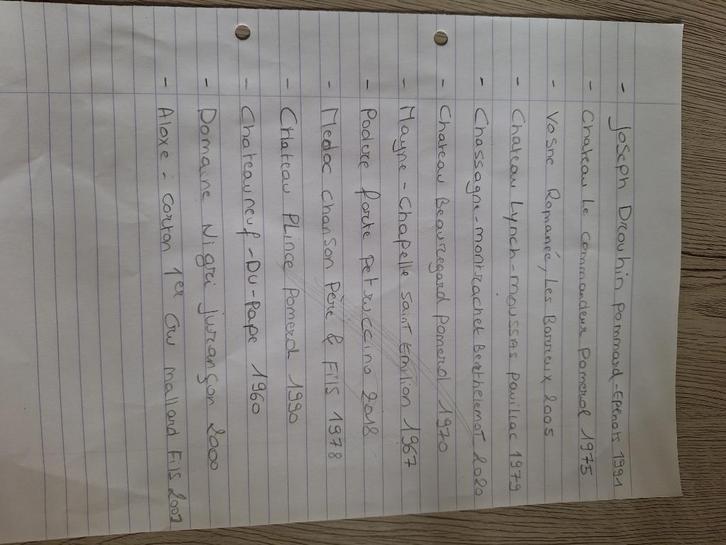 - Joseph Drouhin Pommard-Epenots 1991
- Chateau le commandeur Pomerol 1975
- Vosne Romanée, Les Barreaux 2005
- Chateau Lynch-Moussas Pauillac 1979
- Chassagne-montrachet Berthelemot 2020
- Chateau Beauregard Pomerol 1970
- Mayne-Chapelle Saint Emilion 1967
- Podere Forte Petruccino 2018
- Medoc Chanson Père & Fils 1978
- Château Plince Pomerol 1990
- Chateauneuf-Du-Pape 1960
- Domaine Nigri Jurançon 2000
- Aloxe-Corton 1er Cru Mallard Fils 2002